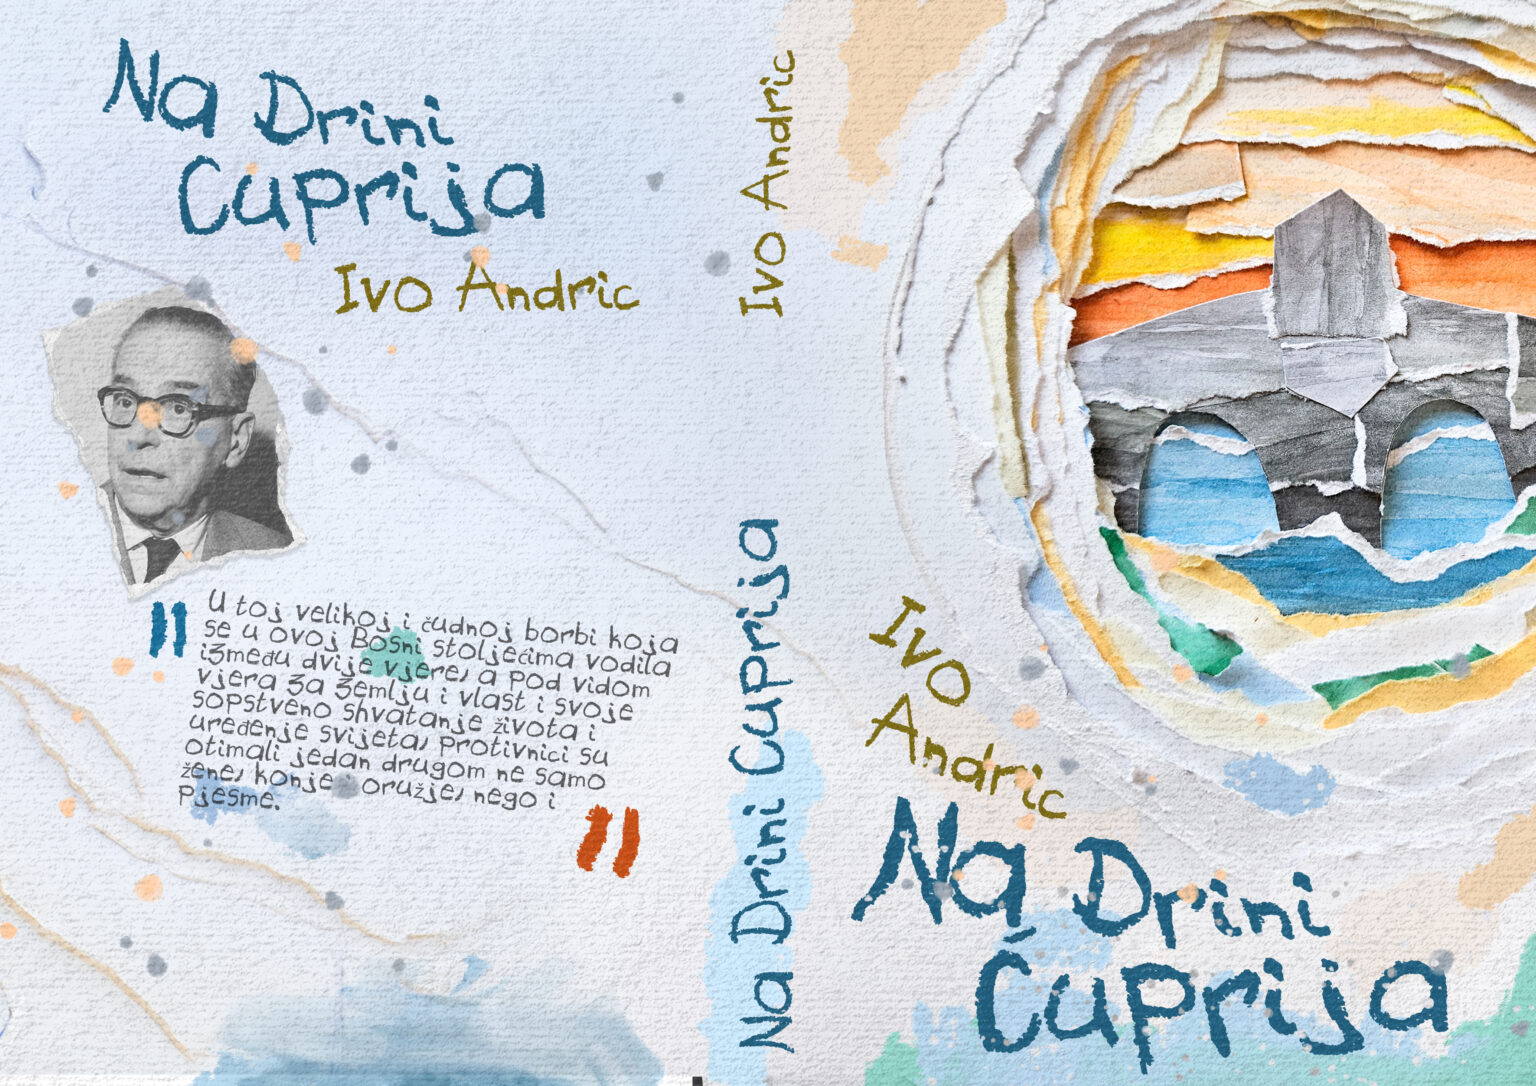 Na Drini
Cuprija
Ivo Andric
"
U toj velikoj i čudnoj borbi koja
se u ovoj Bosni stoljećima vodila
između dvije vjere, a pod vidom
vjera za zemlju i vlast i svoje
sopstveno shvatanje života i
uređenje svijeta, protivnici su
otimali jedan drugom ne samo
žene, konje i oružje, nego i
pjesme.
"
Ivo Andric
Na Drini Cuprija
Ivo
Andric
Na Drini
Ćuprija